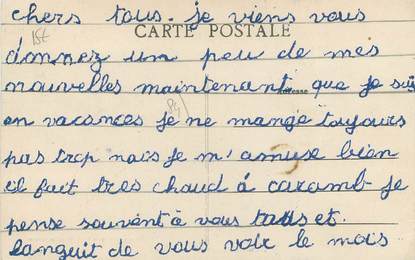 chers tous. je viens vous
15€
CARTE POSTALE
donnez un peu de mes
nouvelles maintenant que je suis
en vacances je ne mange toujours
pas trop mais je m'amuse bien
il fait tres chaud á caramb je
pense souvent à vous tous et.
languit de vous voir le mois